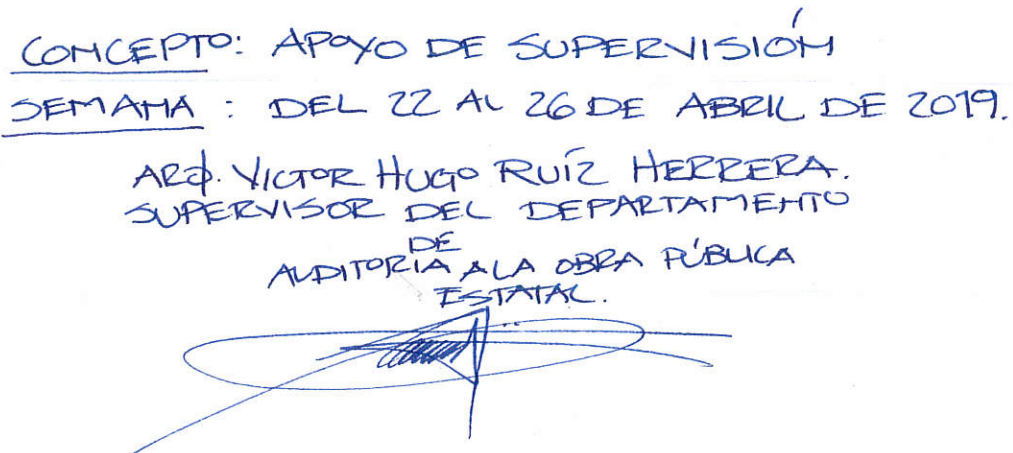 CONCEPTO: APOYO DE SUPERVISIÓN
SEMANA : DEL 22 AL 26 DE ABRIL DE 2019.
ARQ. VICTOR HUGO RUÍZ HERRERA.
SUPERVISOR DEL DEPARTAMENTO
DE
AUDITORIA A LA OBRA PÚBLICA
ESTATAL.